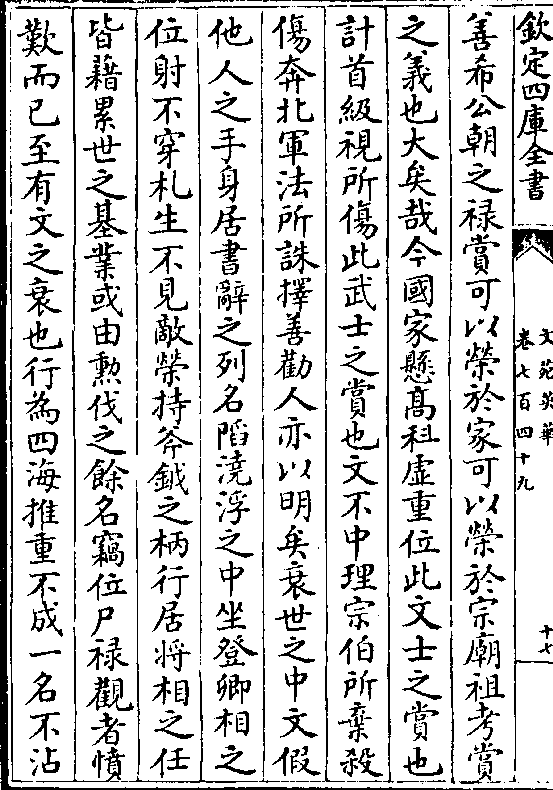 欽定四庫全書
文苑英華
卷七百四十九
十七
善希公朝之禄賞可以榮於家可以榮於宗廟祖考賞
之義也大矣哉今國家懸髙科虚重位此文士之賞也
計首級視所傷此武士之賞也文不中理宗伯所棄殺
傷奔北軍法所誅擇善勸人亦以明矣衰世之中文假
他人之手身居書辭之列名䧟澆浮之中坐登卿相之
位射不穿札生不見敵榮持斧鉞之柄行居將相之任
皆藉累世之基業或由勲伐之餘名竊位尸禄觀者憤
歎而已至有文之衰也行為四海推重不成一名不沾